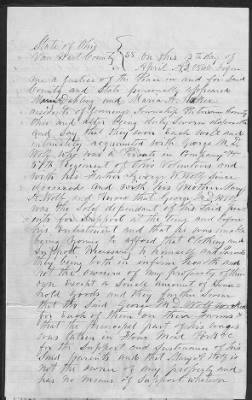 State of Ohio
Van Wert County } SS On this 12th day of
April A.D. 1864 before
me a Justice of the Peace in and for Said
County and State personally appeared
and Maria A.
residents of Jennings Township Van Wert County
Ohio and after being duly sworn deposeth
and Say that they were both well and
intimately acquainted with George M. D.
Wolf who was a Private in Company
57th Regiment of Ohio Volunteers and
with his Father George W Wolf since
deceased and with his Mother Mary
A. Wolf and know that George M. D. Wolf
was the sole dependant of his Said par-
ents for Support at the time and before
his enlistment and that he was unable
being Lame to afford that Clothing and
Support Necessary to himself and
they being both in infirm health and
not the owners of any property of their
own except a Small amount of House
hold Goods and they further know
that the Said George M. D. Wolf worked
for each of them on their Farms &
that the principal part of his wages
was taken in Flour Meal Pork &c
for the Support and Sustenance of his
Said parents and that Mary A Wolf is
not the owner of any property and
has no means of Support whatever